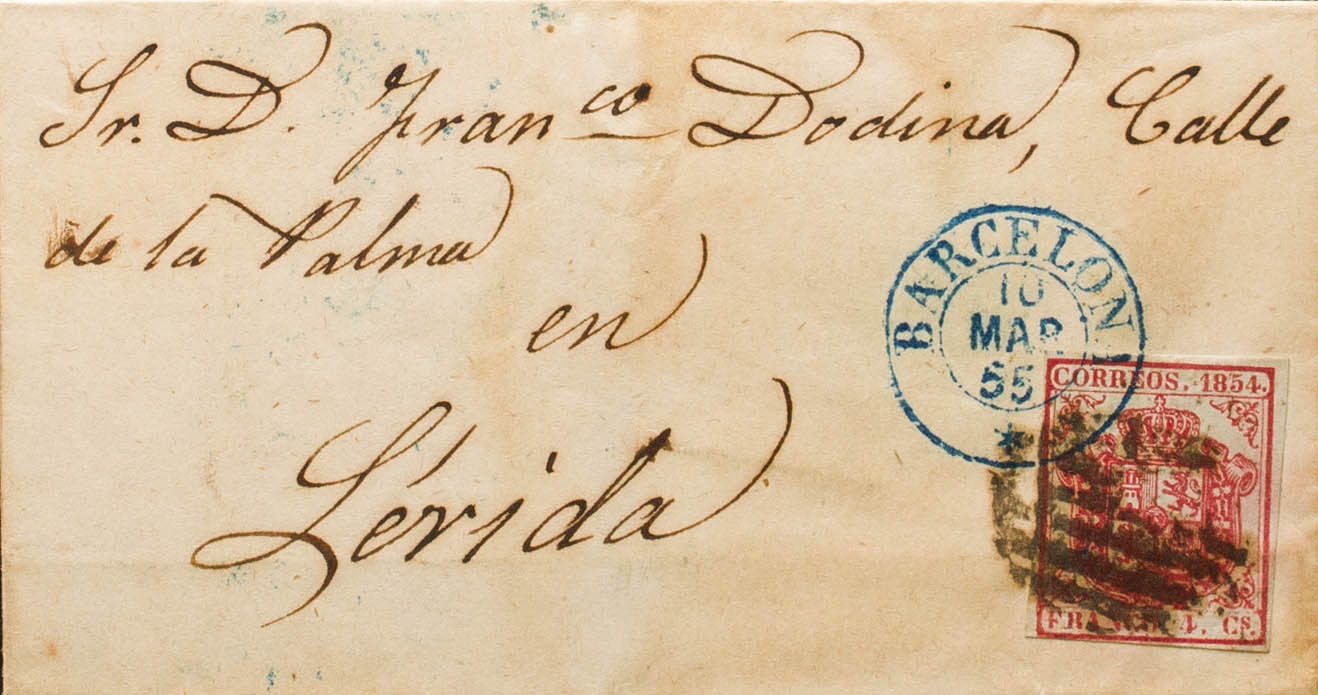 Sr. D. Franco Dodina, Calle
de la Palma
en
Lérida
BARCELONA
10
MAR
55
CORREOS. 1854.
FRANCO. 4. Cs.